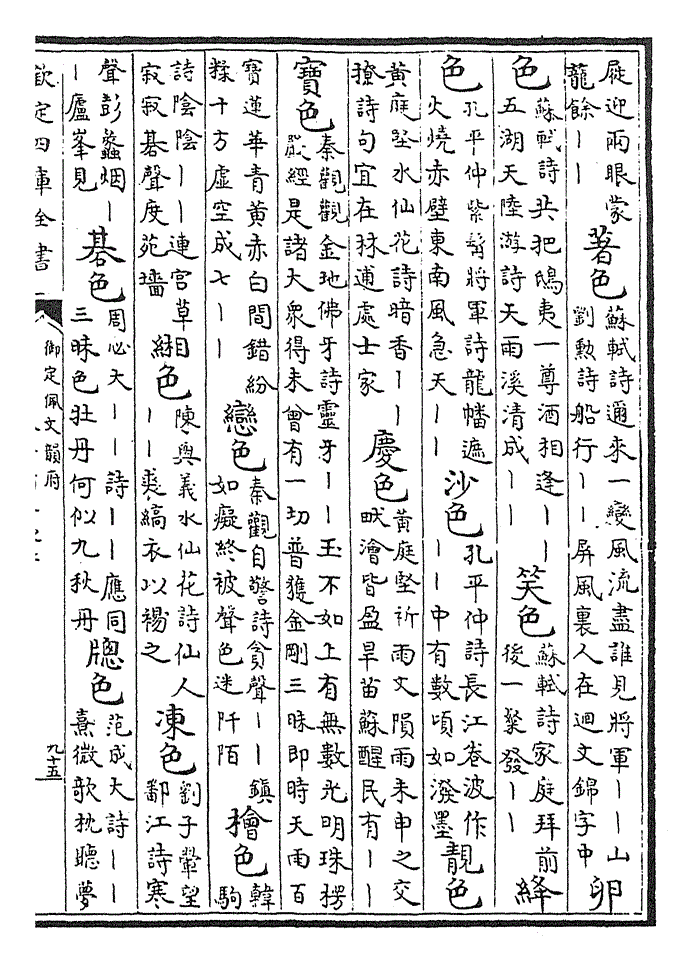 屣迎兩眼蒙
龍餘丨丨
著色
蘇軾詩邇來一變風流盡誰見將軍丨丨山
劉勲詩船行丨丨屏風裏人在迴文錦字中
卵
色
蘇軾詩共把鴟夷一尊酒相逢丨丨
五湖天陸游詩天雨溪清成丨丨
笑色
蘇軾詩家庭拜前
後一粲發丨丨
絳
色
孔平仲紫髯將軍詩龍幡遮
火燒赤壁東南風急天丨丨
沙色
孔平仲詩長江卷波作
丨丨中有數頃如潑墨
靚色
黄庭堅水仙花詩暗香丨丨
撩詩句宜在林逋處士家
慶色
黄庭堅祈雨文隕雨未申之交
畎澮皆盈旱苗蘇醒民有丨丨
寶色
秦觀觀金地佛牙詩靈牙丨丨玉不如上有無數光明珠楞
嚴經是諸大衆得未曾有一切普獲金剛三昧即時天雨百
寶蓮華青黄赤白間錯紛
糅十方虚空成七丨丨
戀色
秦觀自警詩貪聲丨丨鎮
如癡終被聲色迷阡陌
檜色
韓
駒
詩陰陰丨丨連宫草
寂寂碁聲度苑墻
緗色
陳與義水仙花詩仙人
丨丨裘縞衣以裼之
凍色
劉子翬望
鄱江詩寒
聲彭蠡烟丨
丨廬峯見
碁色
周必大丨丨詩丨丨應同
三昧色牡丹何似九秋丹
牕色
范成大詩丨丨
熹微歌枕聽夢
欽定四庫全書
御定佩文韻府
九十五